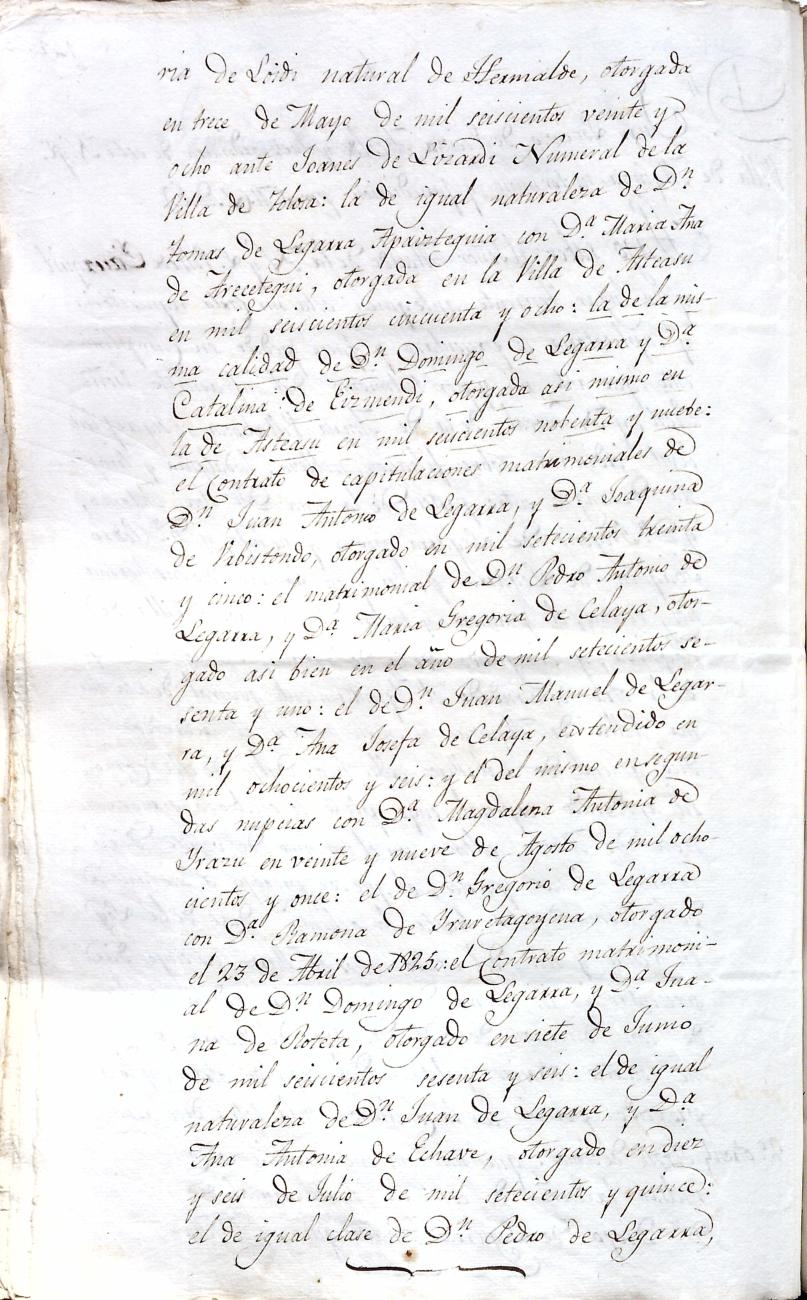 ria de Loidi natural de Hernialde, otorgada
en trece de Mayo de mil seiscientos veinte y
ocho ante Joanes de Lizardi Numeral de la
Villa de Tolosa: la de igual naturaleza de Dn
Tomas de Legarra Apaizteguia con Da Maria Ana
de Arecetegui, otorgada en la Villa de Asteasu
en mil seiscientos cincuenta y ocho: la de la mis-
ma calidad de Dn Domingo de Legarra y Da
Catalina de Eizmendi, otorgada asi mismo en
la de Asteasu en mil seiscientos nobenta y nuebe:
el Contrato de capitulaciones matrimoniales de
Dn Juan Antonio de Legarra, y Da Joaquina
de Urbistondo, otorgado en mil setecientos treinta
y cinco: el matrimonial de Dn Pedro Antonio de
Legarra, y Da Maria Gregoria de Celaya, otor-
gado asi bien en el año de mil setecientos se-
senta y uno: el de Dn Juan Manuel de Legar-
ra, y Da Ana Josefa de Celaya, extendido en
mil ochocientos y seis: y el del mismo en segun-
das nupcias con Da Magdalena Antonia de
Yrazu en veinte y nueve de Agosto de mil ocho-
cientos y once: el de Dn Gregorio de Legarra
con Da Ramona de Yruretagoyena, otorgado
el 23 de Abril de 1825,: el Contrato matrimoni-
al de Dn Domingo de Legarra, y Da Jua-
na de Roteta, otorgado en siete de Junio
de mil seiscientos sesenta y seis: el de igual
naturaleza de Dn Juan de Legarra, y Da
Ana Antonia de Echave, otorgado en diez
y seis de Julio de mil setecientos y quince:
el de igual clase de Dn Pedro de Legarra,